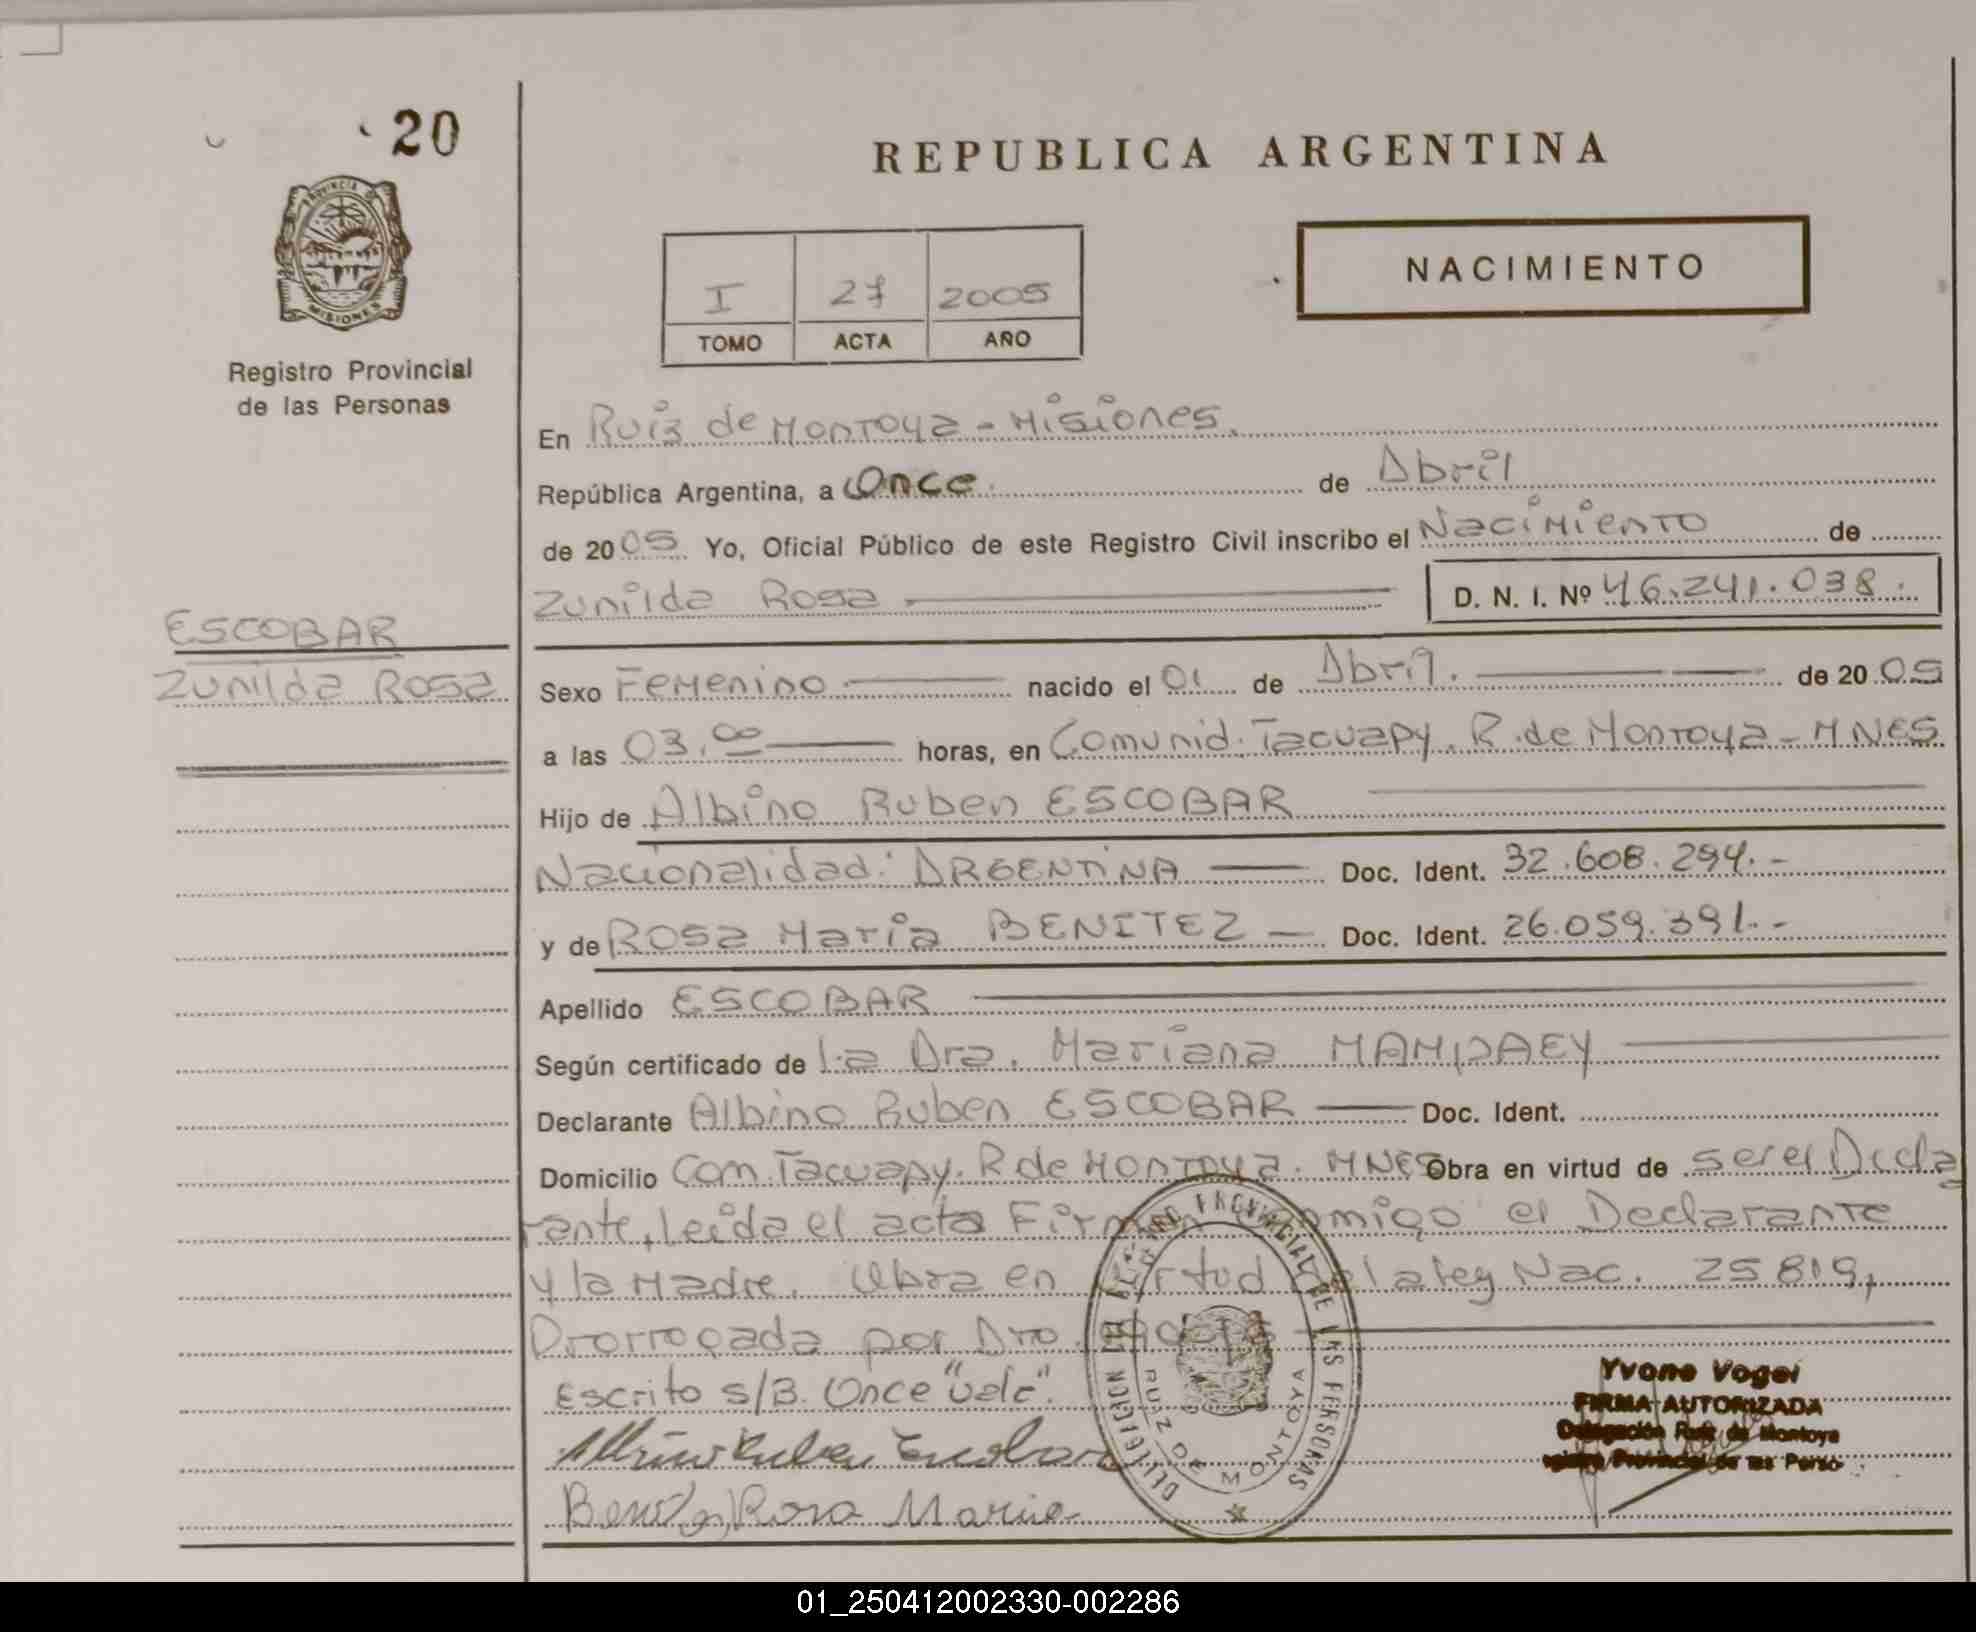 20
PROVINCIA DE
MISIONES
Registro Provincial
de las Personas
REPUBLICA ARGENTINA
I 27 2005
TOMO ACTA AÑO
NACIMIENTO
En Ruiz de Montoya - Misiones.
República Argentina, a Once de Abril
de 2005 Yo, Oficial Público de este Registro Civil inscribo el Nacimiento de
Zunilda Rosa D. N. I. Nº 46.241.038.
ESCOBAR
Zunilda Rosa
Sexo Femenino nacido el 01 de Abril. de 2005
a las 03.00 horas, en Comunid. Tacuapy. R. de Montoya - MNES
Hijo de Albino Ruben ESCOBAR
Nacionalidad: ARGENTINA Doc. Ident. 32.608.294.-
y de Rosa Maria BENITEZ Doc. Ident. 26.059.391.-
Apellido ESCOBAR
Según certificado de La Dra. Mariana MAMPAEY
Declarante Albino Ruben ESCOBAR Doc. Ident.
Domicilio Com. Tacuapy. R de Montoya. MNES Obra en virtud de ser el Decla
rante, Leida el acta Firman conmigo el Declarante
y la Madre. Obra en virtud de la ley Nac. 25819,
Prorrogada por Dto.
Escrito s/B. Once "Vale".
Albino Ruben Escobar
Benitez Rosa Maria
DELEGACION DEL REGISTRO PROVINCIAL DE LAS PERSONAS
RUIZ DE MONTOYA
Yvone Vogel
FIRMA AUTORIZADA
Delegación Ruiz de Montoya
Provincial de las Perso
01_250412002330-002286